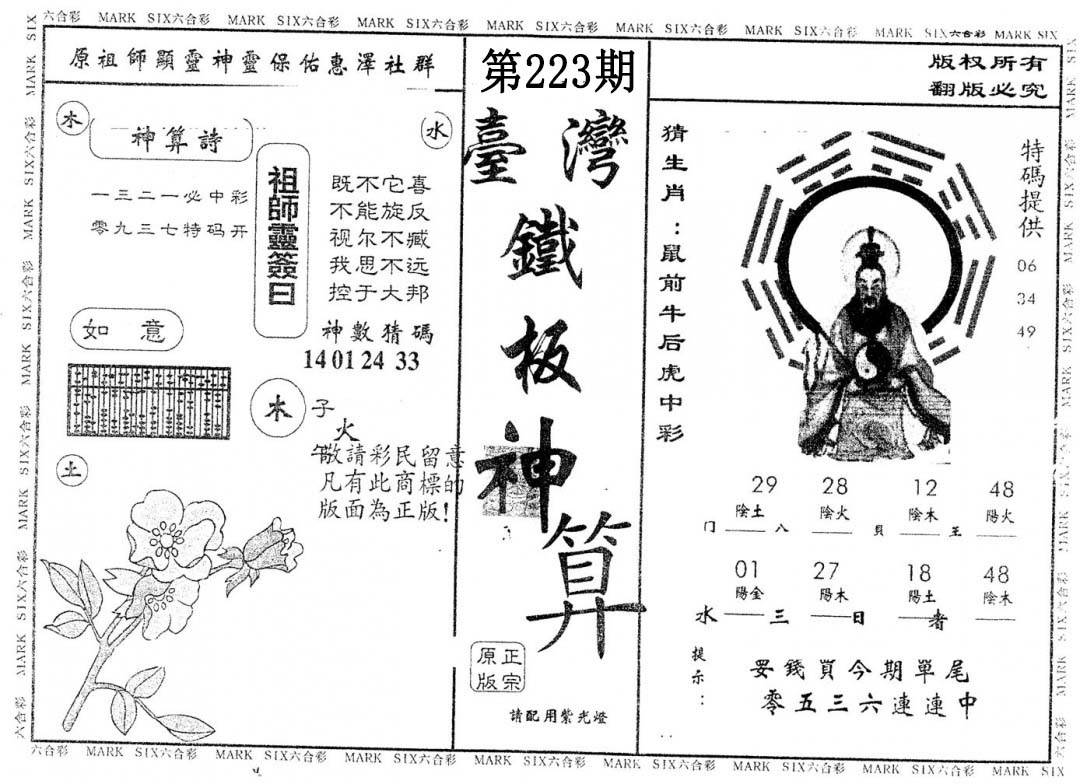 六合彩 MARK SIX六合彩 MARK SIX六合彩 MARK SIX六合彩 MARK SIX六合彩 MARK SIX六合彩 MARK SIX六合彩 MARK SIX六合彩 MARK SIX
原祖師顯靈神靈保佑惠澤社群
木
神算詩
水
一三二一必中彩
零九三七特码开
祖師靈簽曰
既不它喜
不能旋反
视尔不臧
我思不远
控于大邦
神數猜碼
14 01 24 33
如意
木
子
火
午
敬請彩民留意
凡有此商標的
版面為正版!
土
第223期
臺灣
鐵
板
神
算
正宗
原版
請配用紫光燈
版权所有
翻版必究
猜生肖:鼠前牛后虎中彩
特碼提供
06
34
49
29 28 12 48
陰土 陰火 陰木 陽火
门 八 貝 王
01 27 18 48
陽金 陽木 陽土 陰木
水 三 日 者
提示:
妥錢買今期單尾
零五三六連連中
六合彩 MARK SIX六合彩 MARK SIX六合彩 MARK SIX六合彩 MARK SIX六合彩 MARK SIX六合彩 MARK SIX六合彩 MARK SIX六合彩 MARK SIX